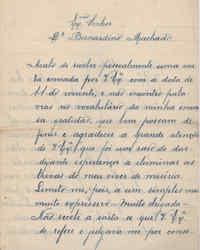 Exmo Senhor
Dr. Bernardino Machado
Acabo de receber pessoalmente uma
enviada por V. Exª com a data de
11 do corrente, e não encontro pala-
vras no vocabulario da minha
gratidão, que bem possam
e agradecer a grande atenção
de V. Exª, que foi um raio de
esperança a eliminar as
trevas do meu viver de miseria.
Limito-me, pois, a um simples mas
muito expressivo - Muito obrigado -
a carta a que V. Exª
se refere e julgava-me por